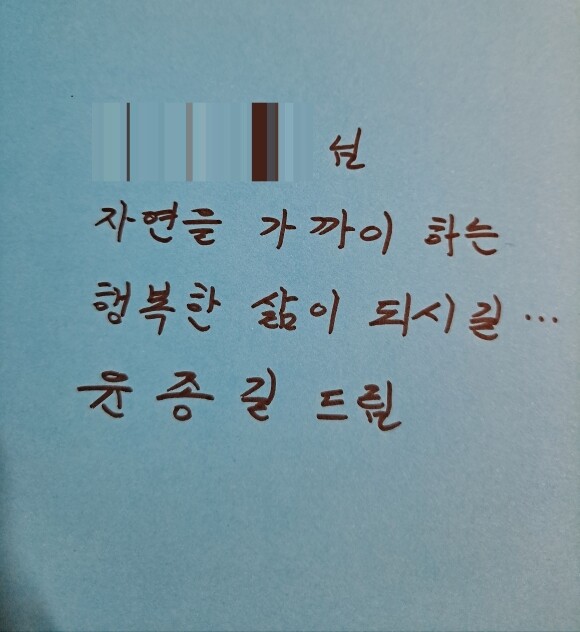 님
자연을 가까이 하는
행복한 삶이 되시길...
윤종길 드림